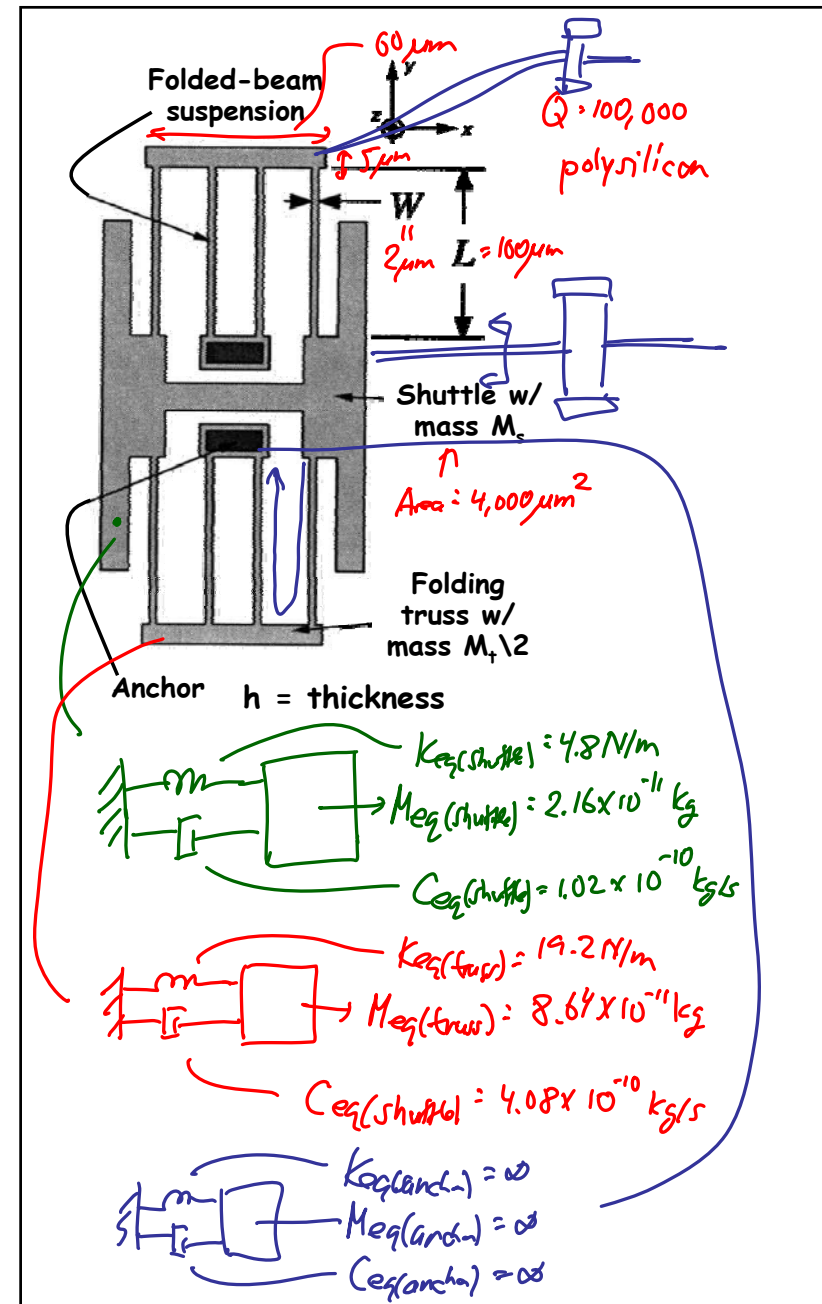 60 μm
Folded-beam
suspension
y
z
x
Q = 100,000
polysilicon
5 μm
W
"
2 μm
L = 100 μm
Shuttle w/
mass Ms
Area = 4,000 μm²
Folding
truss w/
mass Mt\2
Anchor
h = thickness
Keq(shuttle) = 4.8 N/m
Meq(shuttle) = 2.16 x 10⁻¹¹ kg
Ceq(shuttle) = 1.02 x 10⁻¹⁰ kg/s
Keq(truss) = 19.2 N/m
Meq(truss) = 8.64 x 10⁻¹¹ kg
Ceq(shuttle) = 4.08 x 10⁻¹⁰ kg/s
Keq(anchor) = ∞
Meq(anchor) = ∞
Ceq(anchor) = ∞